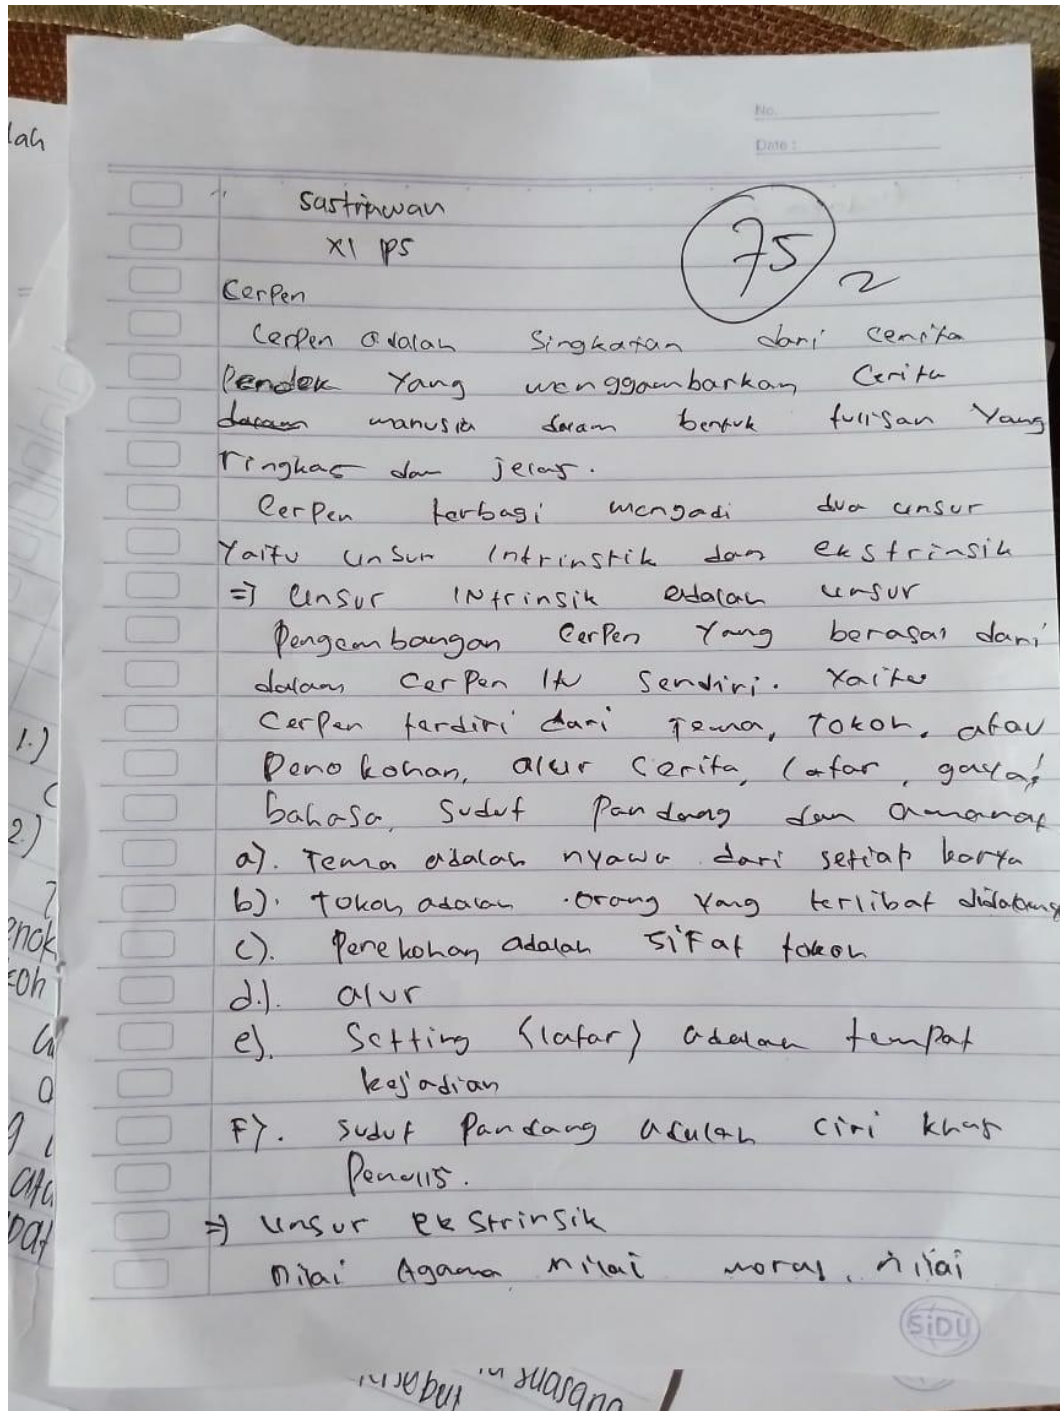 No.
Date :
Sastriawan
XI IPS
75
2
Cerpen
Cerpen adalah Singkatan dari cerita
Pendek Yang menggambarkan Cerita
manusia dalam bentuk tulisan Yang
ringkas dan jelas.
Cerpen terbagi mengadi dua unsur
Yaitu unsur Intrinstik dan ekstrinsik
=> Unsur INtrinsik adalah unsur
Pengembangan Cerpen Yang berasal dari
dalam Cerpen Itu Sendiri. Yaitu
Cerpen terdiri dari Tema, Tokoh, atau
Penokohan, alur Cerita, latar, gaya
bahasa, Sudut Pandang dan amanat
a). Tema adalah nyawa dari setiap karya
b). Tokoh adalah orang Yang terlibat didalam
c). Penekohan adalah SiFat tokoh
d.). alur
e). Setting (latar) adalah tempat
kejadian
F). Sudut Pandang adalah Ciri khas
Penulis.
=> Unsur ekstrinsik
Nilai Agama, nilai moral, nilai
SiDU
lah
1.)
2.)
suasana